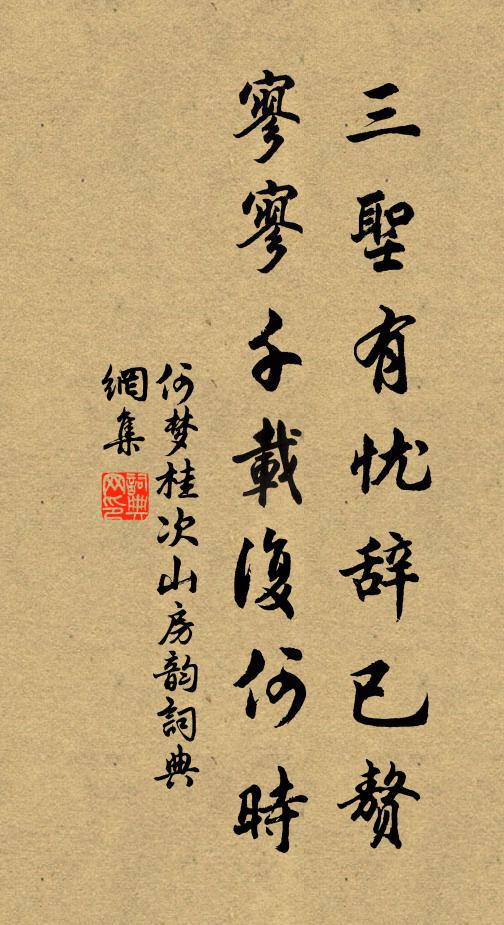 三聖有忧辞已赘
寥寥千載復何時
何梦桂次山房韵詞典
網集
詞典网印